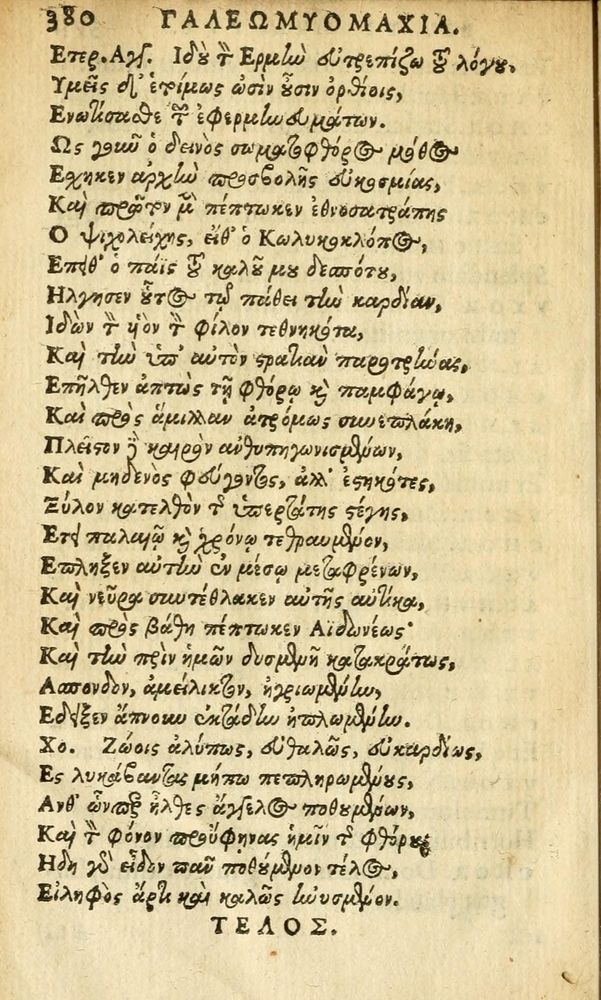 380 ΓΑΛΕΩΜΥΟΜΑΧΙΑ.
Ετερ. Αγγ. Ιδοὺ τὸν Ερμίω εὐτρεπίζω τοῦ λόγου,
Υμεῖς δ' ἑτοίμως ὠσὶν οὖσιν ὀρθίοις,
Ενωτίσαθε τῶν ἐφερμίωευμάτων.
Ως γοιῶ ὁ δεινὸς σωματοφθόρος μόθος
Εχηκεν ἀρχίω προσβολῆς εὐκοσμίας,
Καὶ πρῶτον μὲν πέπτωκεν ἐθνοσατράπης
Ο ψιχολείχης, εἶθ' ὁ Κωλυκοκλόπος,
Επειθ' ὁ παῖς τοῦ καλοῦ μου δεσπότου,
Ηλγησεν οὗτος τῷ πάθει τίω καρδίαν,
Ιδὼν τὸν ὑὸν τὸν φίλον τεθνηκότα,
Καὶ τίω ὑπ' αὐτὸν στρατιὰν παροτρύνας,
Επῆλθεν ἀπτὼς τῇ φθόρῳ καὶ παμφάγῳ,
Καὶ πρὸς ἅμιλλαν ἀτρόμως σιωεπλάκη,
Πλεῖστον δὲ καιρὸν ἀνθυπηγωνισμένων,
Καὶ μηδενὸς φεύγοντος, ἀλλ' ἑστηκότες,
Ξύλον κατελθὸν τῆς ὑπερτάτης στέγης,
Ετει παλαιῷ καὶ χρόνῳ τεθραυμένον,
Επληξεν αὐτίω ἐν μέσῳ μεταφρένων,
Καὶ νεῦρα σιωτέθλακεν αὐτῆς αὐτίκα,
Καὶ πρὸς βάθη πέπτωκεν Αϊδωνέως·
Καὶ τίω πρὶν ἡμῶν δυσμενῆ κατακράτως,
Ασπονδον, ἀμείλικτον, ἠγριωμένίω,
Εδειξεν ἄπνοιω ἐκτάδίω ἡπλωμένίω.
Χο. Ζώοις ἀλύπως, εὐθαλῶς, εὐκαρδίως,
Ες λυκάβαντας μήπω πεπληρωμένους,
Ανθ' ὧνπερ ἦλθες ἄγγελος ποθουμένων,
Καὶ τὸν φόνον προὔφηνας ἡμῖν τῆς φθόρου·
Ηδη γὰρ εἶδον πᾶν ποθούμενον τέλος,
Εἰληφὸς ἄρτι καὶ καλῶς ἰωυσμένον.
ΤΕΛΟΣ.